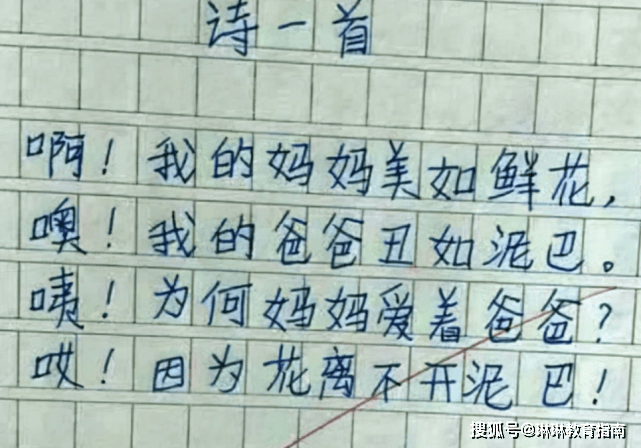 诗一首
啊！我的妈妈美如鲜花，
噢！我的爸爸丑如泥巴。
咦！为何妈妈爱着爸爸？
哎！因为花离不开泥巴！
搜狐号@琳琳教育指南